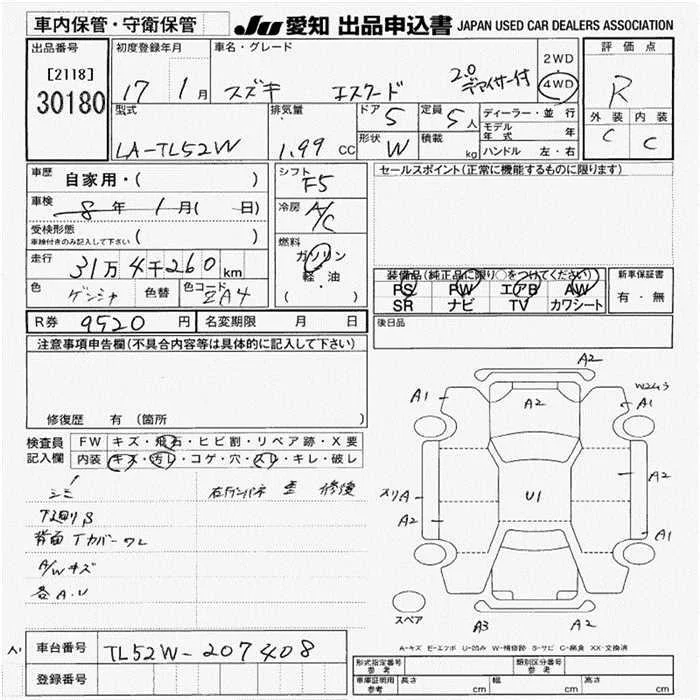 車内保管・守衛保管 JU 愛知 出品申込書 JAPAN USED CAR DEALERS ASSOCIATION
出品番号 [2118] 30180
初度登録年月 17 1月
車名・グレード スズキ エスクード 2.0
2WD 4WD
評価点 R
外装 C 内装 C
型式 LA-TL52W
排気量 1.99 CC
ドア 5 定員 5人
形状 W 積載 kg
ディーラー・並行
モデル年式 年
ハンドル 左・右
車歴 自家用・( )
シフト F5
セールスポイント(正常に機能するものに限ります)
車検 8年 1月( 日)
冷房 A/C
受検形態 車検付きのみ記入して下さい ( )
燃料 ガソリン 軽・油 ( )
走行 31万4千260 km
色 ゲンシャ 色替 色コード ZA4
装備品(純正品に限り○をつけてください) 新車保証書
PS PW エアB AW 有・無
SR ナビ TV カワシート
R券 9520 円 名変期限 月 日
後日品
注意事項申告欄(不具合内容等は具体的に記入して下さい)
修復歴 有 (箇所 )
検査員記入欄 FW キズ・飛石・ヒビ割・リペア跡・X要
内装 キズ・汚レ・コゲ・穴・スレ・キレ・破レ
シミ
下廻りS
背面Tカバーワレ
A/Wキズ
各A.U
修復
A2
A1 A2 W2 A1
スリA A2 U1 A2
A1
スペア A3 A2
A-キズ E-エクボ U-凹み W-補修跡 S-サビ C-腐食 XX-交換済
車台番号 TL52W-207408
登録番号
形式指定番号 参考 類別区分番号 参考
車庫証明用 参考 長さ cm 幅 cm 高さ cm